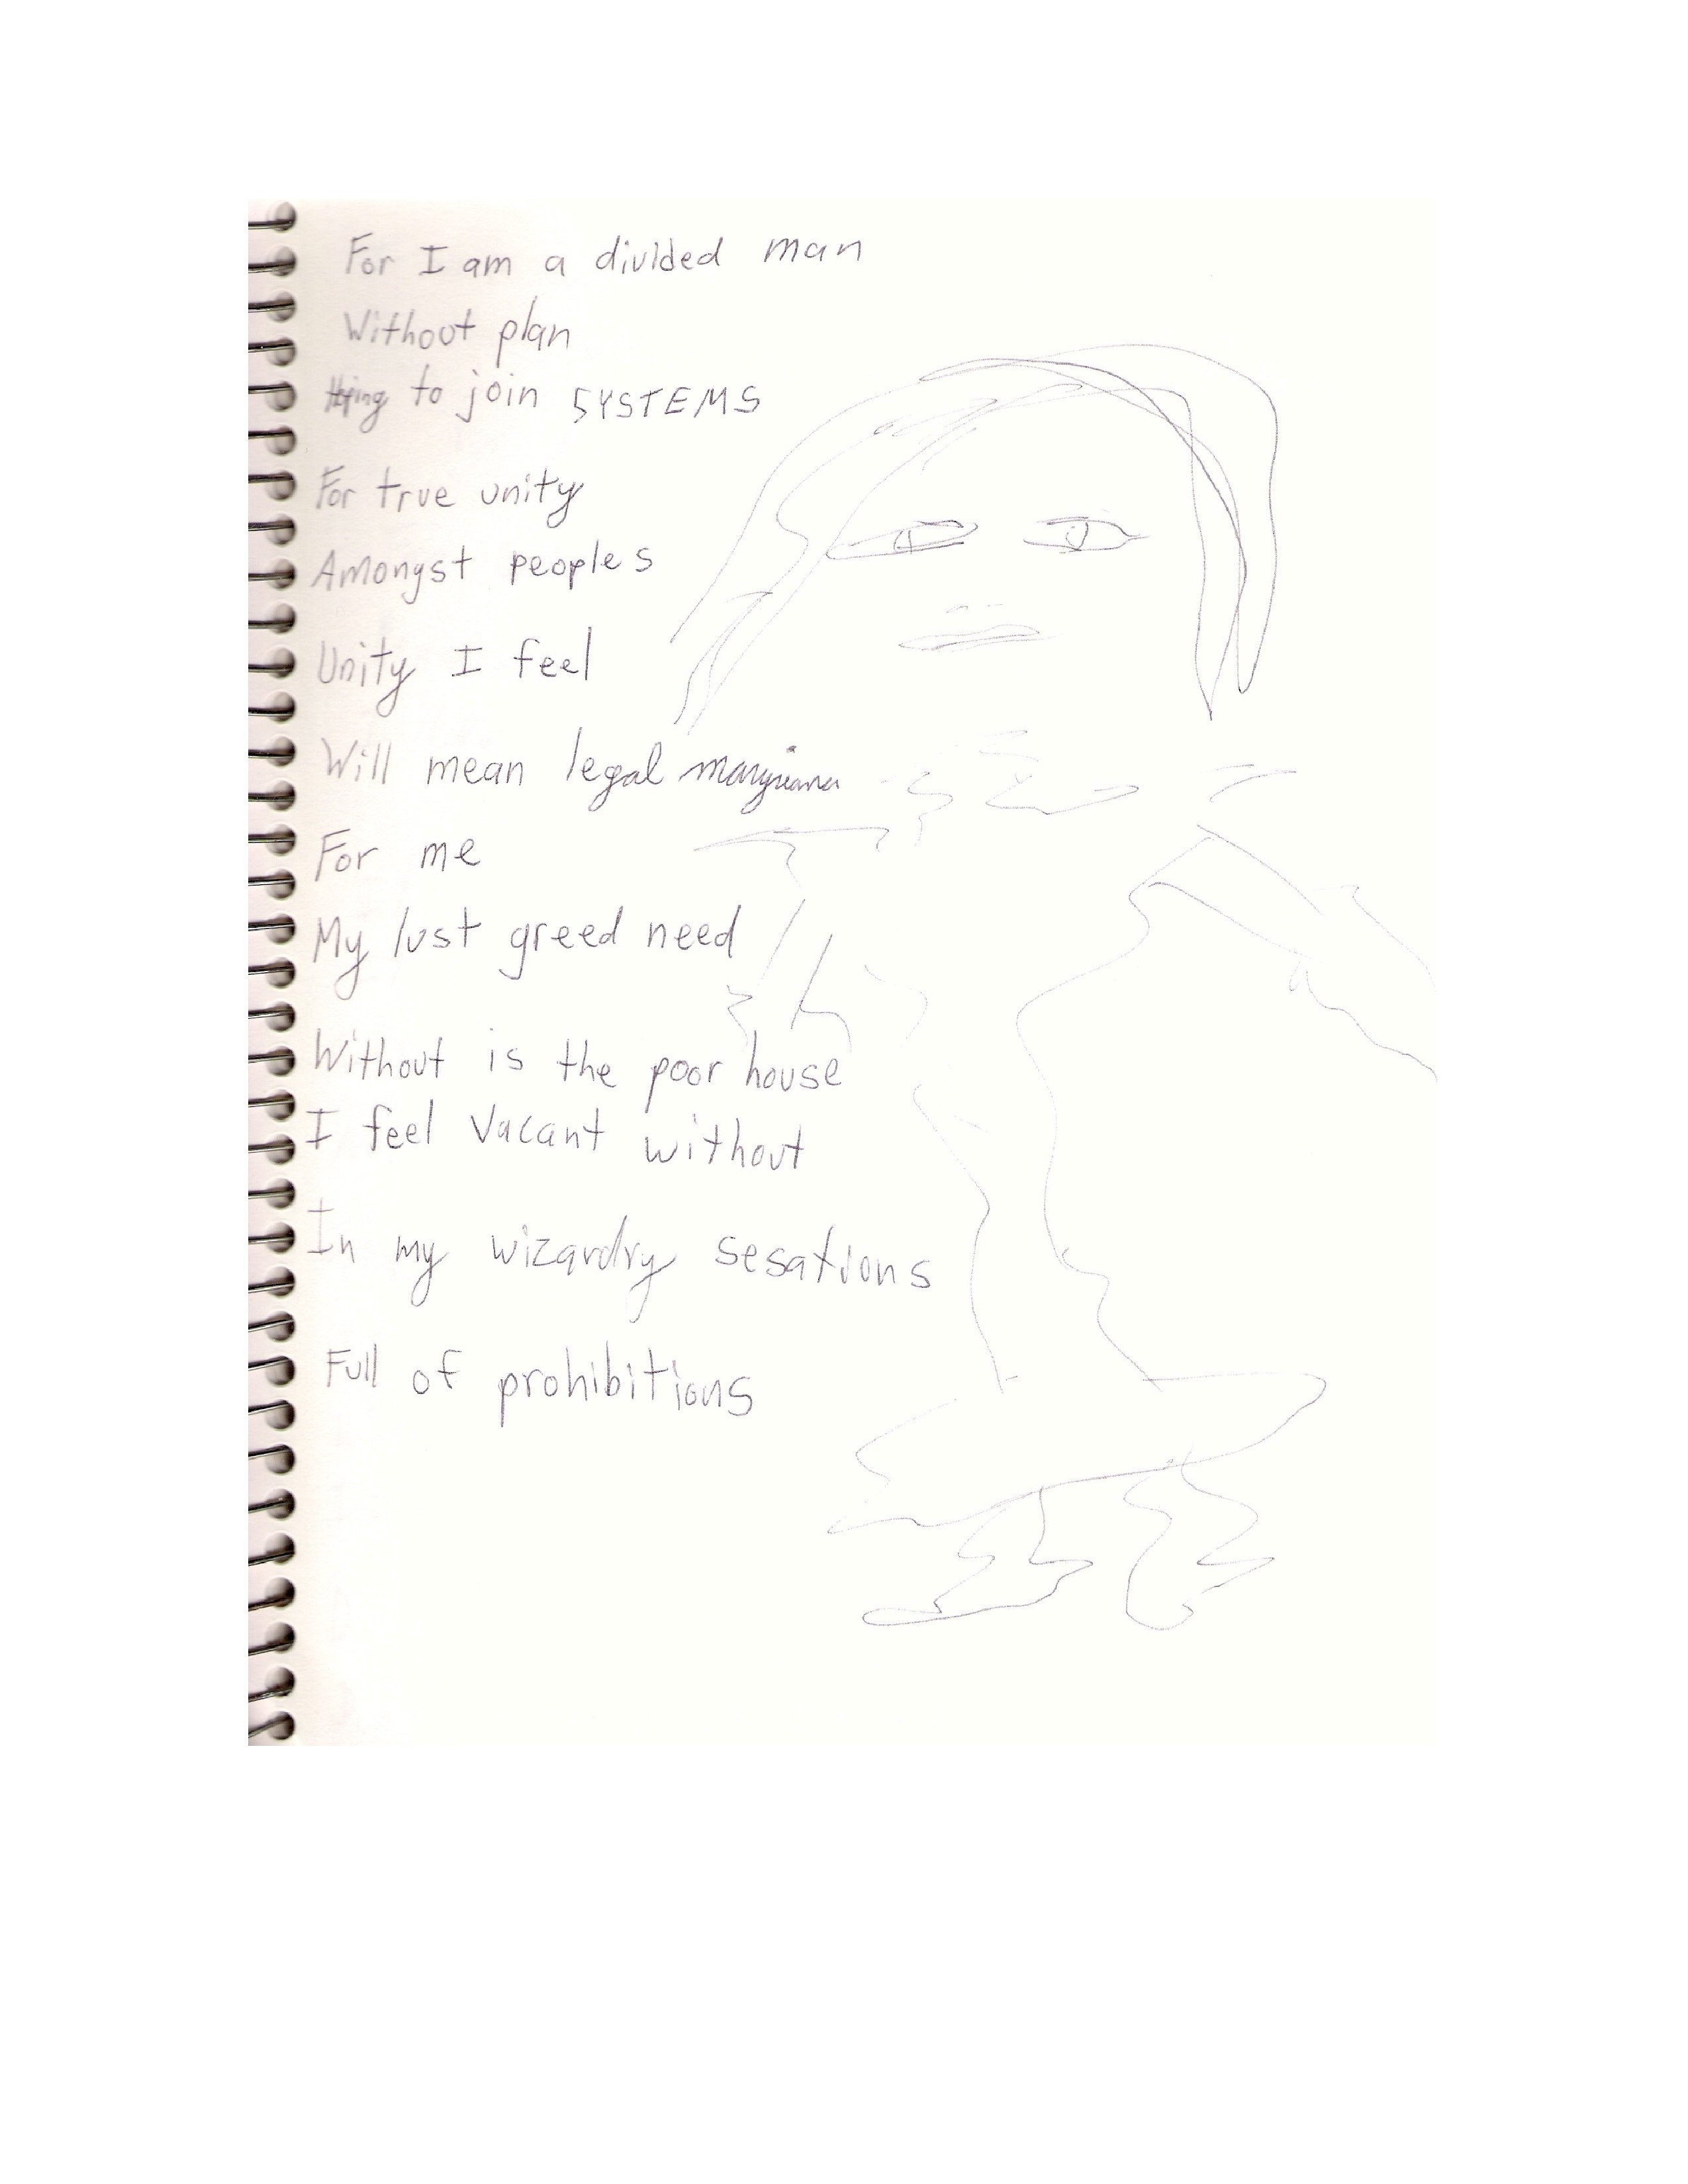 For I am a divided man
Without plan
Hoping to join SYSTEMS
For true unity
Amongst peoples
Unity I feel
Will mean legal marijuana
For me
My lust greed need
Without is the poor house
I feel Vacant without
In my wizardry sesations
Full of prohibitions